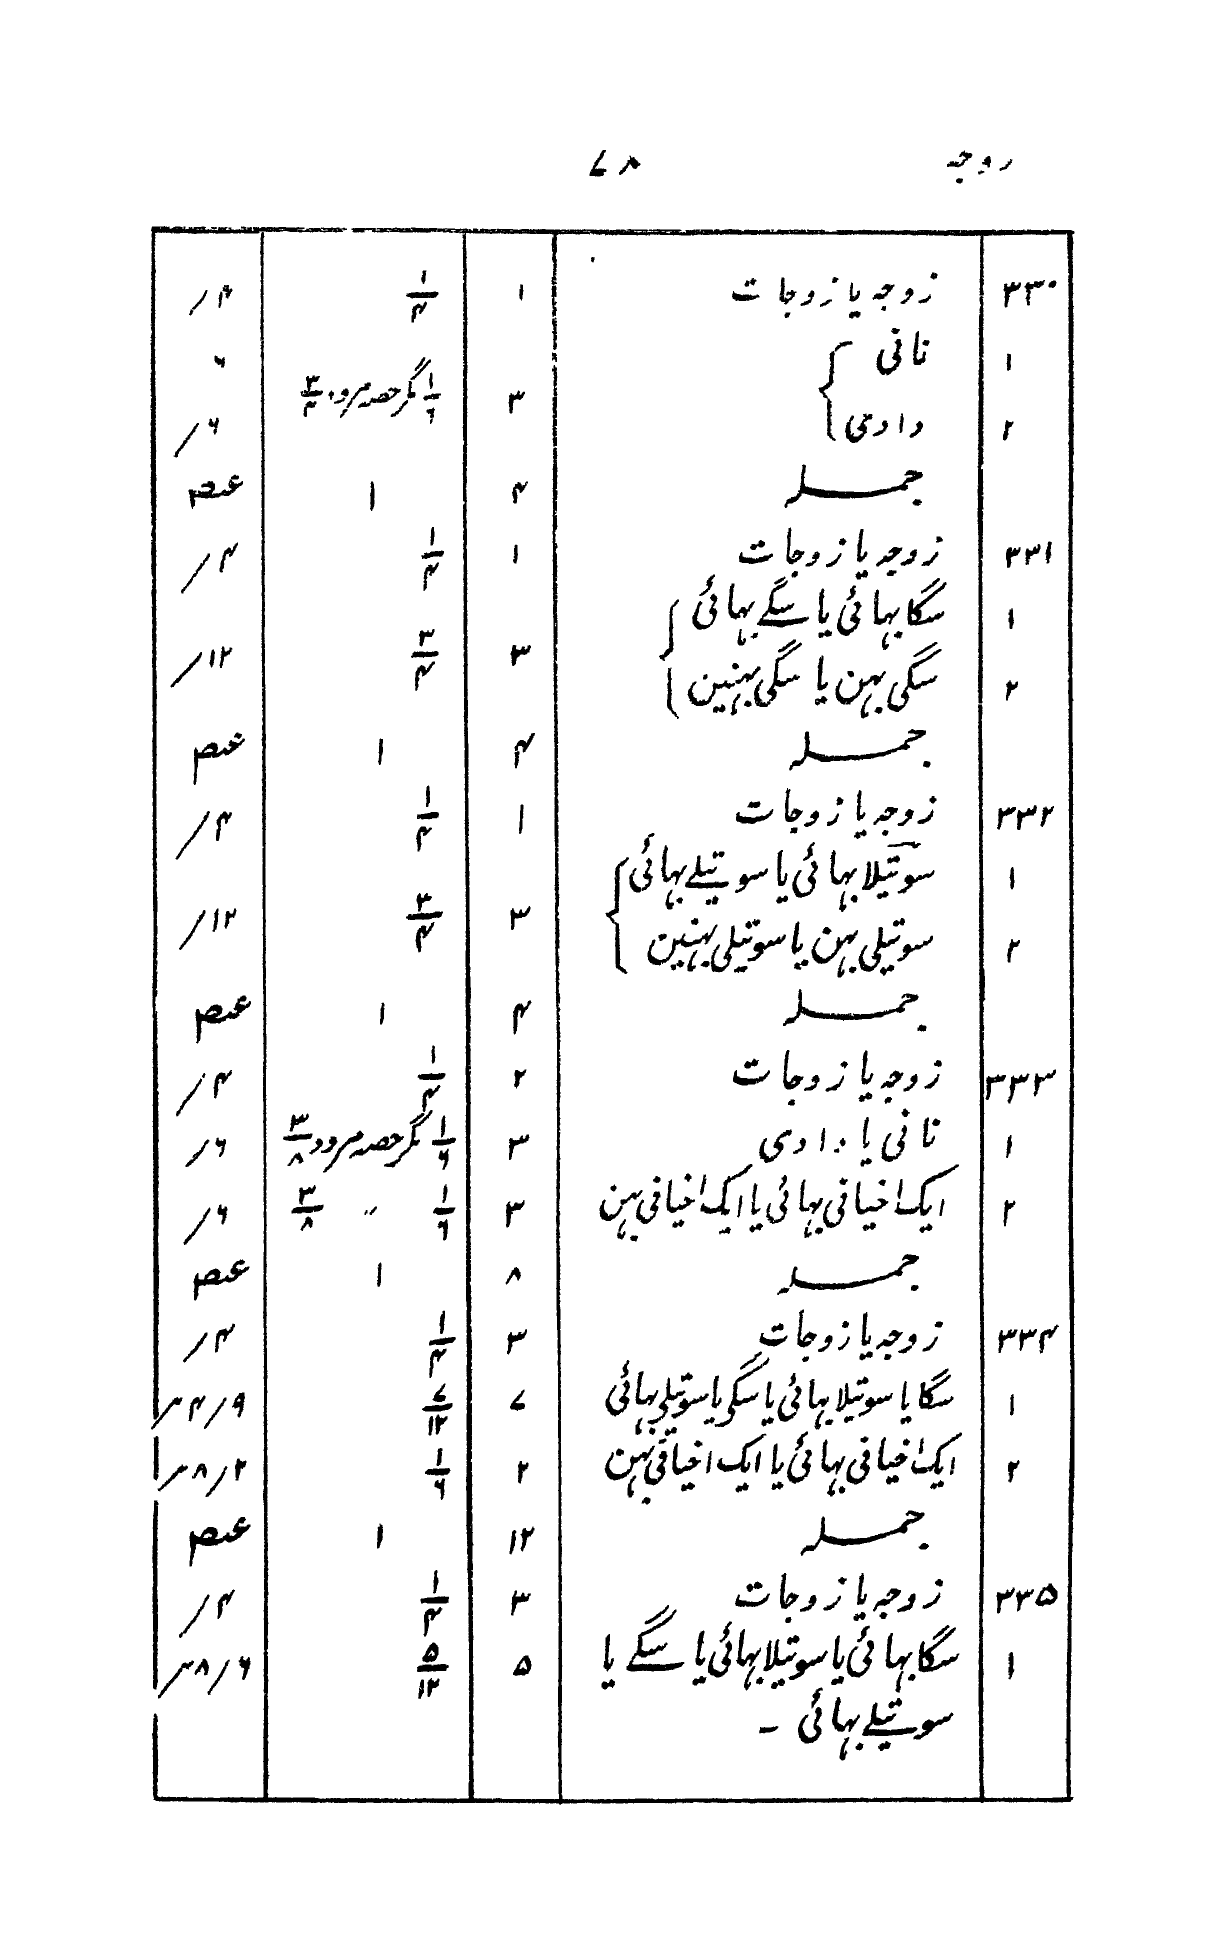 زوجہ ۷۸
۳۳۰ زوجہ یا زوجات ۱ ۱/۴ ۴/
۱ نانی ۶
۳ ۱/۶ مگر حصہ مرد ۳/۴
۲ دادی ۶/
جملہ ۴ ۱ عہ
۳۳۱ زوجہ یا زوجات ۱ ۱/۴ ۴/
۱ سگا بہائی یا سگے بہائی
۳ ۳/۴ ۱۲/
۲ سگی بہن یا سگی بہنین
جملہ ۴ ۱ عہ
۳۳۲ زوجہ یا زوجات ۱ ۱/۴ ۴/
۱ سوتیلا بہائی یا سوتیلے بہائی
۳ ۳/۴ ۱۲/
۲ سوتیلی بہن یا سوتیلی بہنین
جملہ ۴ ۱ عہ
۳۳۳ زوجہ یا زوجات ۲ ۱/۴ ۴/
۱ نانی یا دادی ۳ ۱/۶ مگر حصہ مردود ۳/۸ ۶/
۲ ایک اخیافی بہائی یا ایک اخیافی بہن ۳ ۱/۶ 〃 ۳/۸ ۶/
جملہ ۸ ۱ عہ
۳۳۴ زوجہ یا زوجات ۳ ۱/۴ ۴/
۱ سگا یا سوتیلا بہائی یا سگے یا سوتیلے بہائی ۷ ۷/۱۲ ۹/۴
۲ ایک اخیافی بہائی یا ایک اخیافی بہن ۲ ۱/۶ ۲/۸
جملہ ۱۲ ۱ عہ
۳۳۵ زوجہ یا زوجات ۳ ۱/۴ ۴/
۱ سگا بہائی یا سوتیلا بہائی یا سگے یا ۵ ۵/۱۲ ۶/۸
سوتیلے بہائی ۔